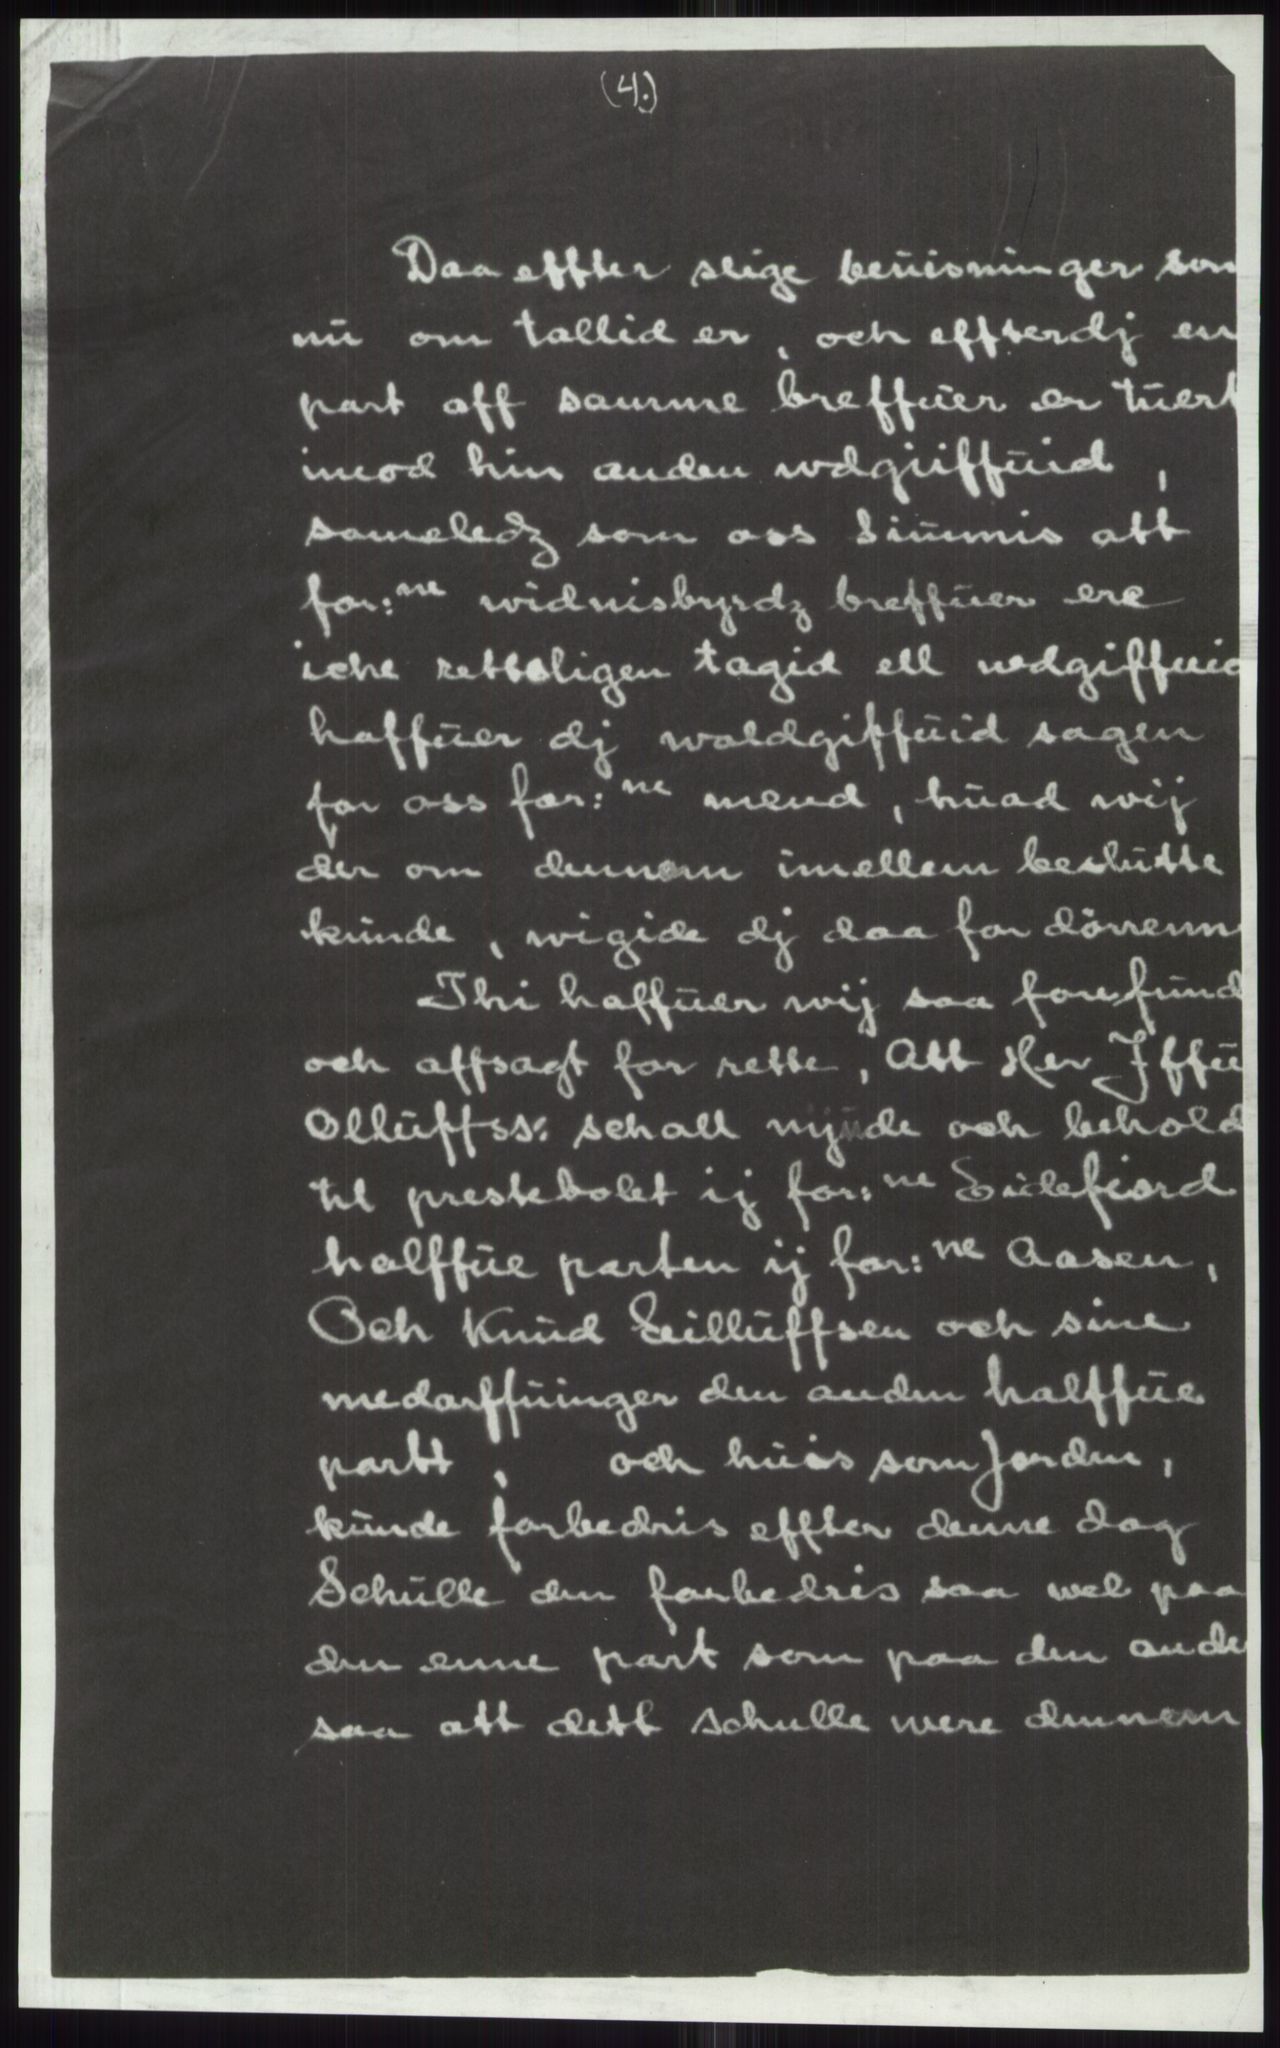 (4.)
Daa effter slige beuisninger som
nü om tallid er, och effterdj en
part aff samme breffüer er tüert
imod hin anden wdgüffüid,
sameledz som oss Siünnis att
for:ne widnisbyrdz breffüer ere
icke rettoligen tagid ell wdgiffuid
haffüer dj woldgiffüid sagen
for oss for:ne mend, hüad wij
der om dennom imellem beslütte
künde, wigide dj daa for dörrenn
Thi haffüer wij saa forefünd
och affsagt for rette, Att Her Iffüe
Ollüffss: schall nÿude och behold
til prestebolet ij for:ne Eidefiord
halffüe parten ij for:ne Aasen,
Och Knüd Eillüffsen och sine
medarffüinger den anden halffüe
partt, och hüis som Jorden,
künde forbedris effter denne dag
Schülle den forbedris saa wel paa
den enne part som paa den ande
saa att dett schulle were dennom